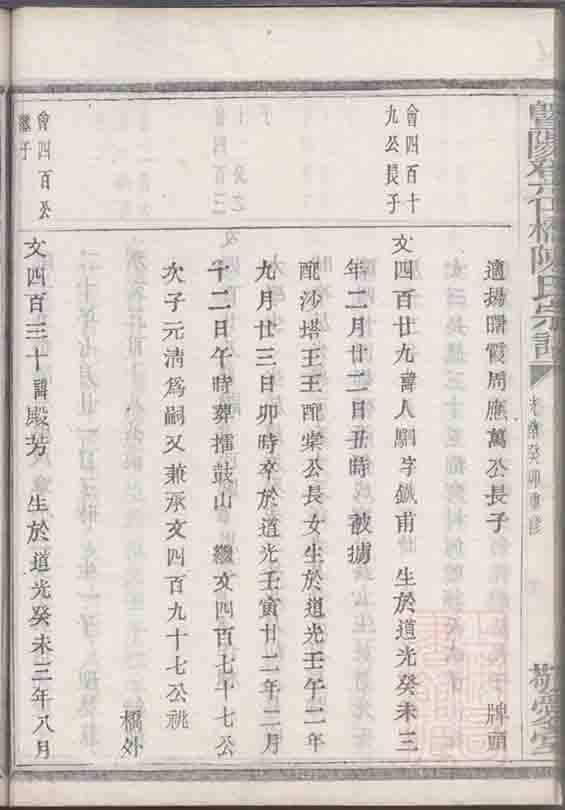 暨陽橋陳氏宗譜
光緒癸卯重修
敬愛堂
適揚曙霞周應萬公長子 牌頭
會四百十
九公長子
文四百廿九諱人駰字欽甫 生於道光癸未三
年二月廿二日丑時 被擄
配沙塔王王配棠公長女生於道光壬午二年
九月廿三日卯時卒於道光壬寅廿二年二月
十二日午時葬擂鼓山 繼文四百七十七公
次子元清爲嗣又兼承文四百九十七公祧
橋外
會四百公
繼子
文四百三十諱殿芳 生於道光癸未三年八月